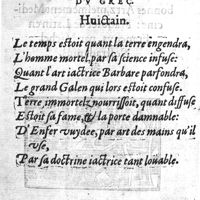 DV GREC.
Huictain.
Le temps estoit quant la terre engendra,
L'homme mortel, par sa science infuse:
Quant l'art iactrice Barbare parfondra,
Le grand Galen qui lors estoit confuse.
Terre immortelz nourrissoit, quant diffuse
Estoit sa fame, & la porte damnable:
D'Enfer vuydee, par art des mains qu'il
vse,
Par sa doctrine iactrice tant louable.